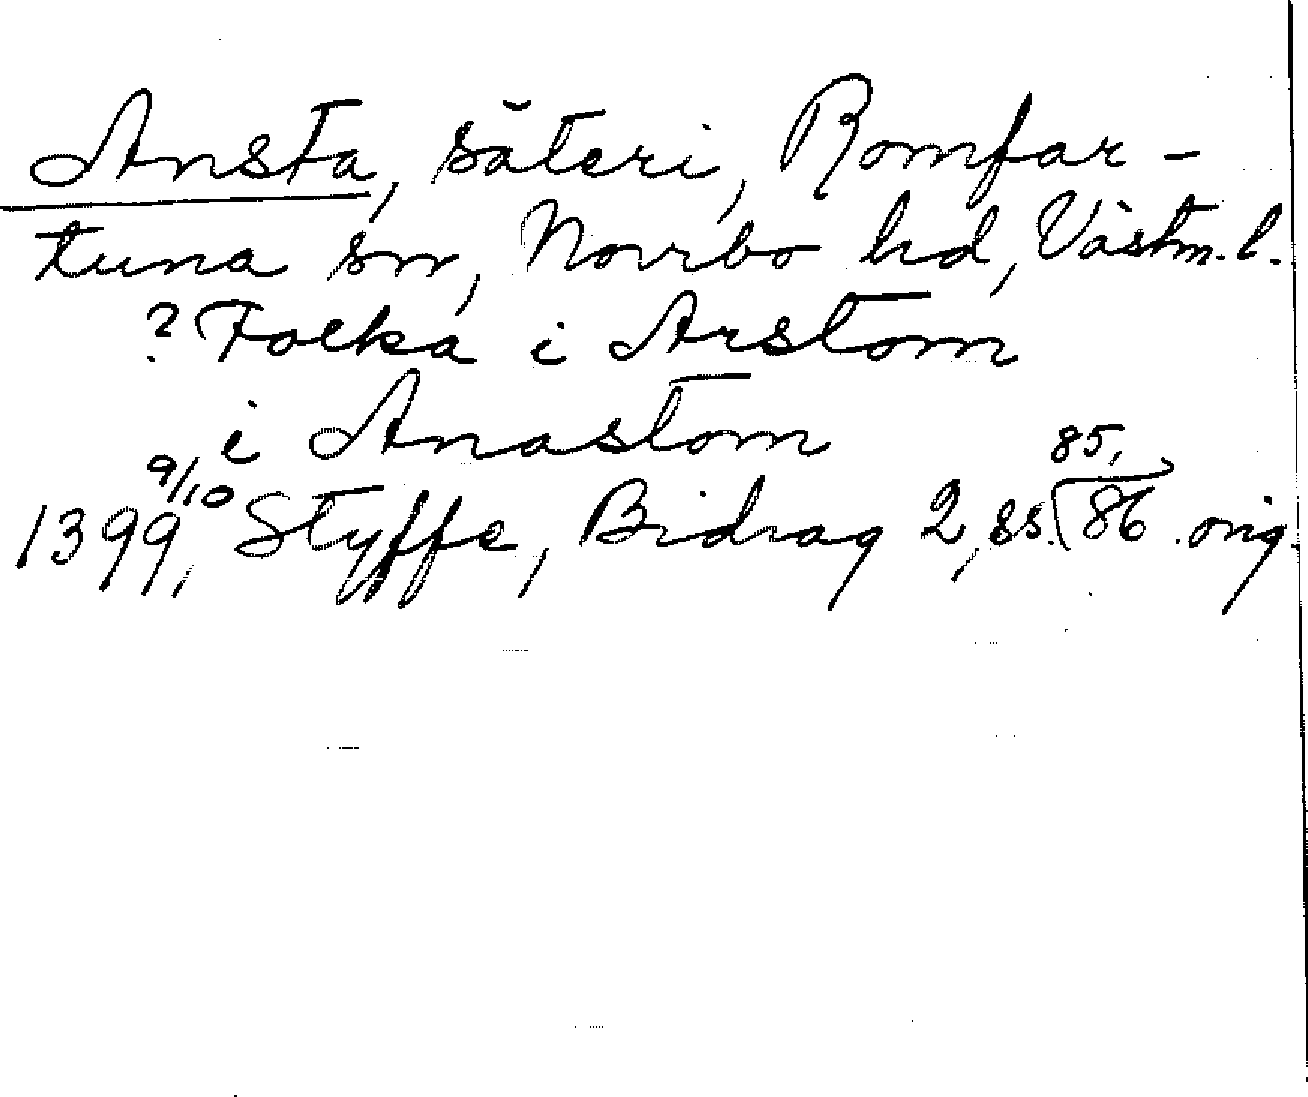 Ansta, säteri, Romfar-
tuna sn, Norrbo hd, Västm. l.
? Folka i Arstom
i Anastom
1399 9/10, Styffe, Bidrag 2, ss. 85, 86 orig.